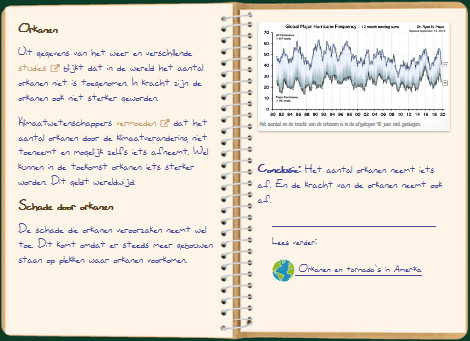 Orkanen
Uit gegevens van het weer en verschillende
studies blijkt dat in de wereld het aantal
orkanen niet is toegenomen. In kracht zijn de
orkanen ook niet sterker geworden.
Klimaatwetenschappers vermoeden dat het
aantal orkanen door de klimaatverandering niet
toeneemt en mogelijk zelfs iets afneemt. Wel
kunnen in de toekomst orkanen iets sterker
worden. Dit geldt wereldwijd.
Schade door orkanen
De schade die orkanen veroorzaken neemt wel
toe. Dit komt omdat er steeds meer gebouwen
staan op plekken waar orkanen voorkomen.
Global Major Hurricane Frequency - 12 month running sums
Dr. Ryan N. Maue
70
60
50
40
30
20
10
0
80 82 84 86 88 90 92 94 96 98 00 02 04 06 08 10 12 14 16 18 20
Het aantal en de kracht van de orkanen is in de afgelopen 40 jaar niet gestegen.
Conclusie: Het aantal orkanen neemt iets
af. En de kracht van de orkanen neemt ook
af.
Lees verder:
Orkanen en tornado's in Amerika